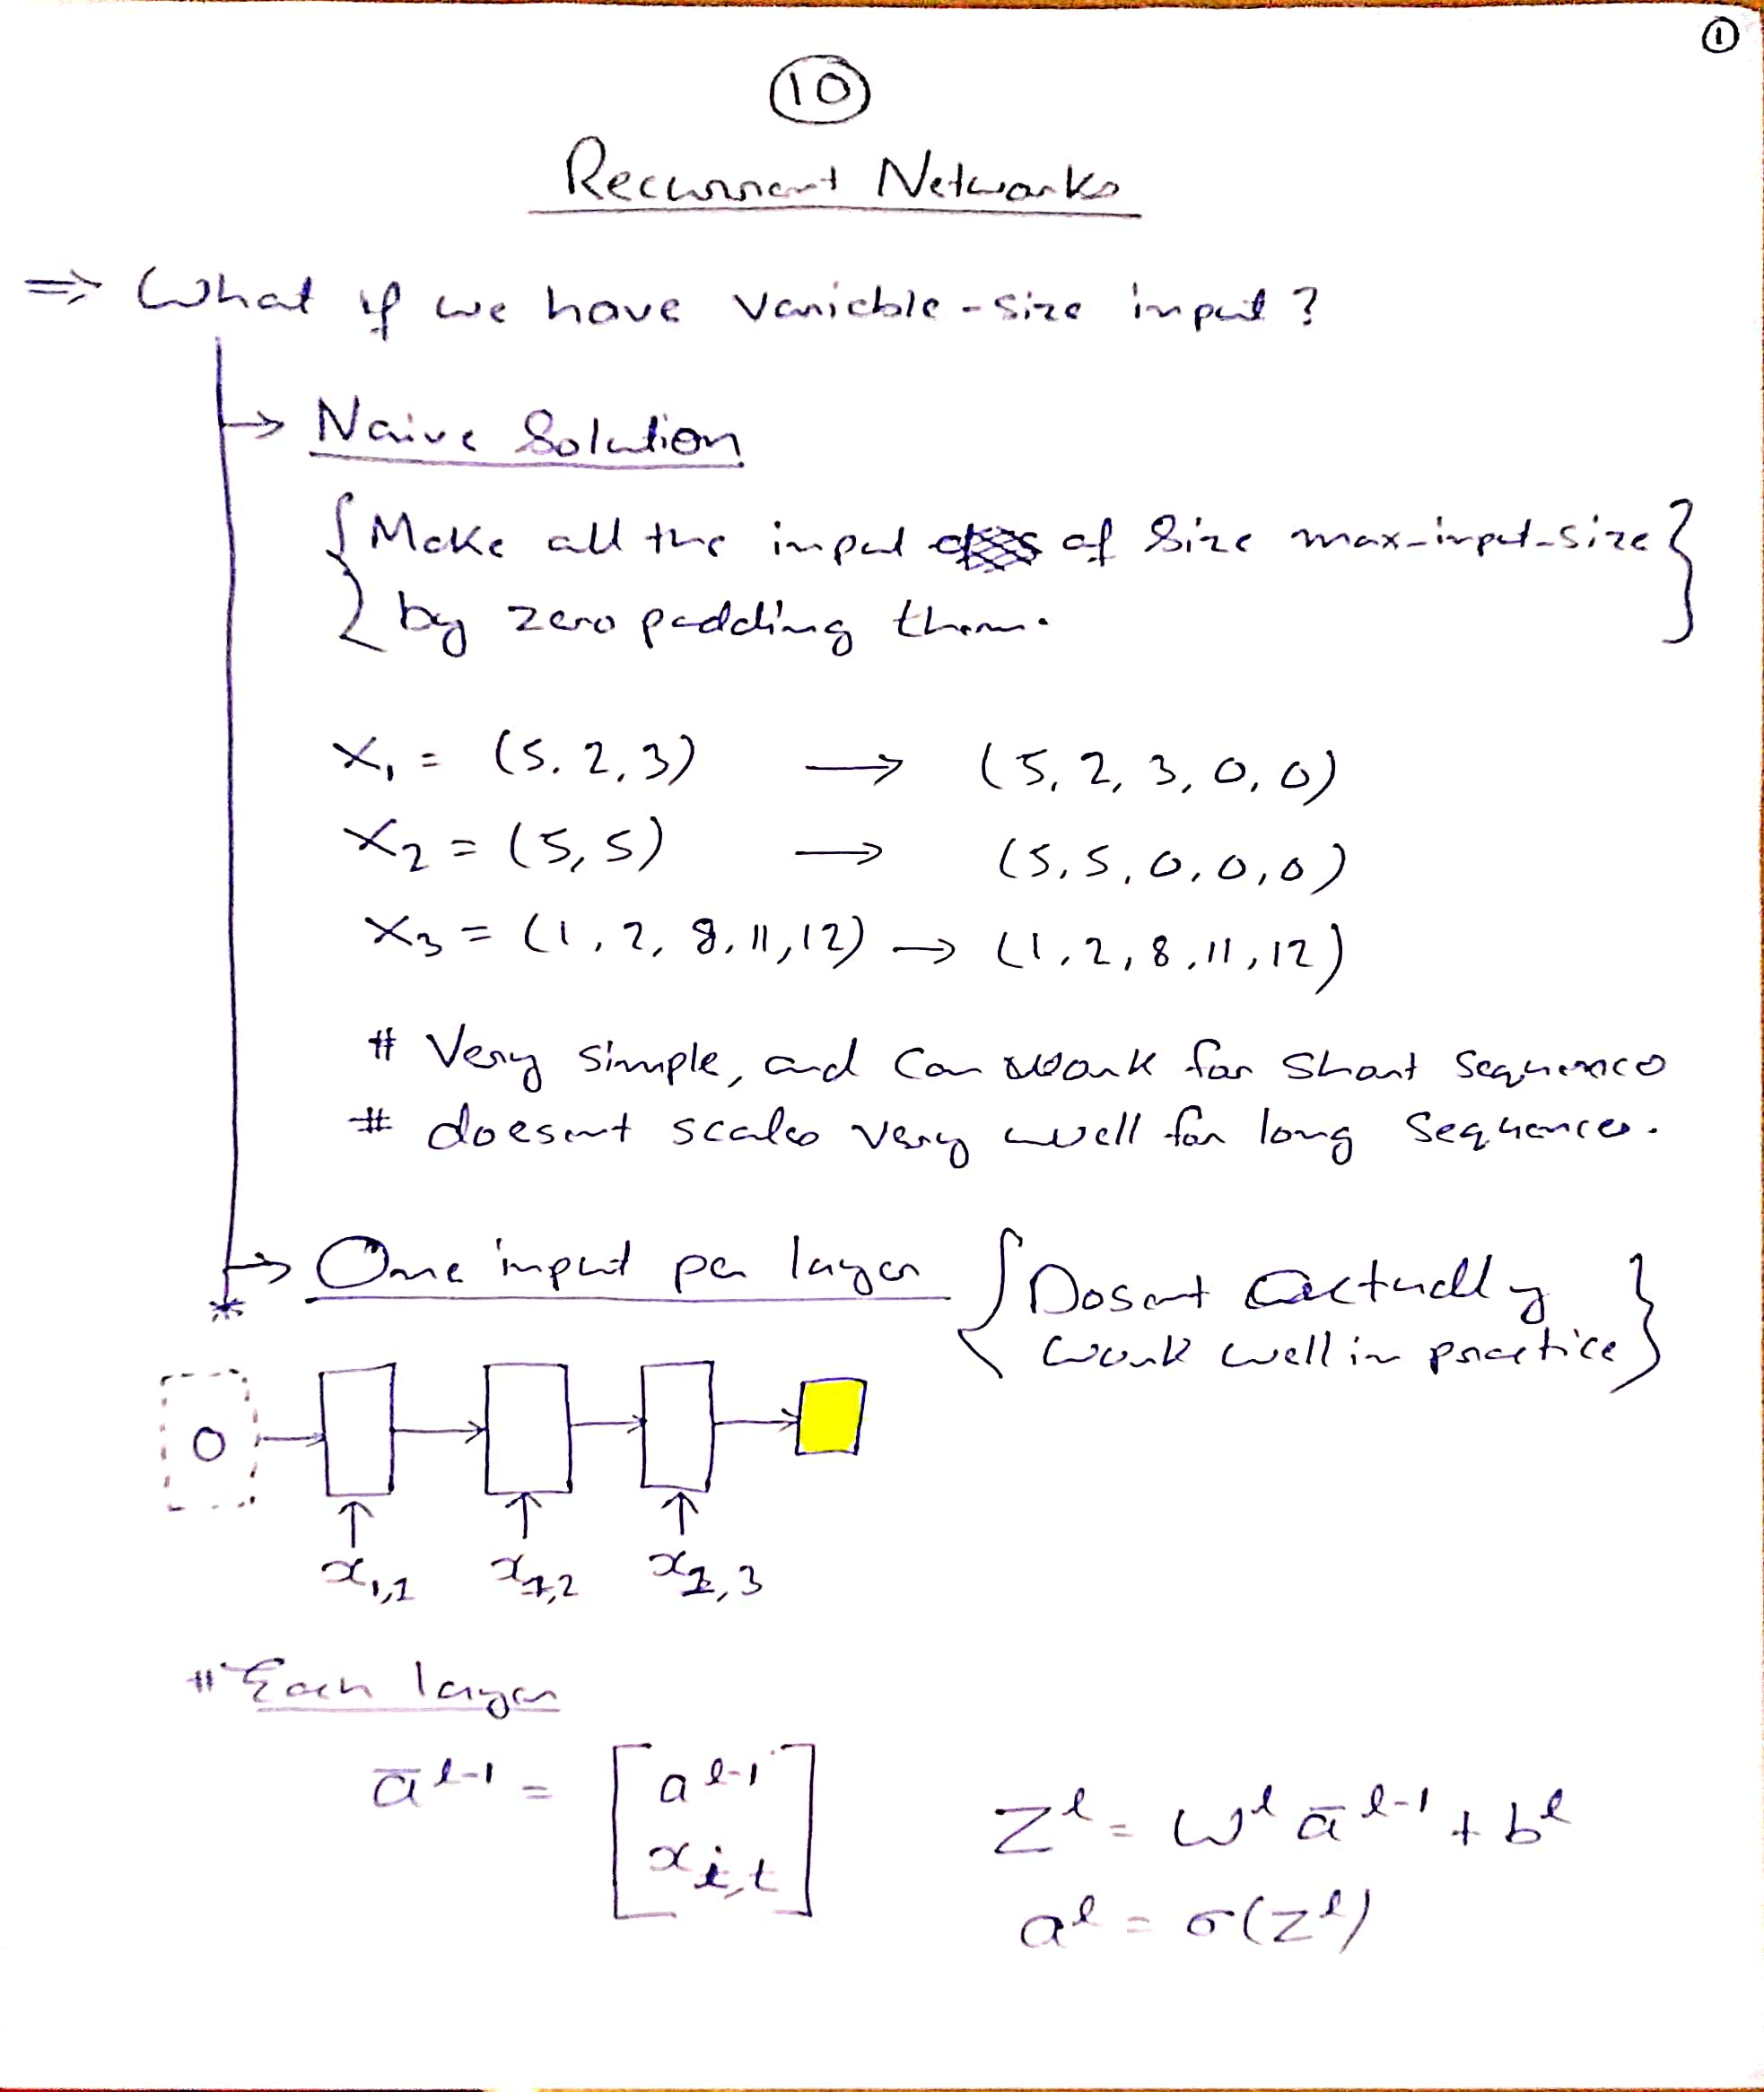 ①
⑩
Recurrent Networks
⇒ What if we have variable-size input?
→ Naive Solution
{Make all the input of size max-input-size}
by zero padding them.
x₁ = (5, 2, 3) → (5, 2, 3, 0, 0)
x₂ = (5, 5) → (5, 5, 0, 0, 0)
x₃ = (1, 2, 8, 11, 12) → (1, 2, 8, 11, 12)
# Very simple, and can work for short sequence
# doesent scales very well for long sequences.
→ One input per layer {Dosent actually
work well in practice}
0
x₁,₁ x₁,₂ x₁,₃
# Each layer
ā^{l-1} = [a^{l-1}
x_{i,t}]
z^l = W^l ā^{l-1} + b^l
a^l = σ(z^l)